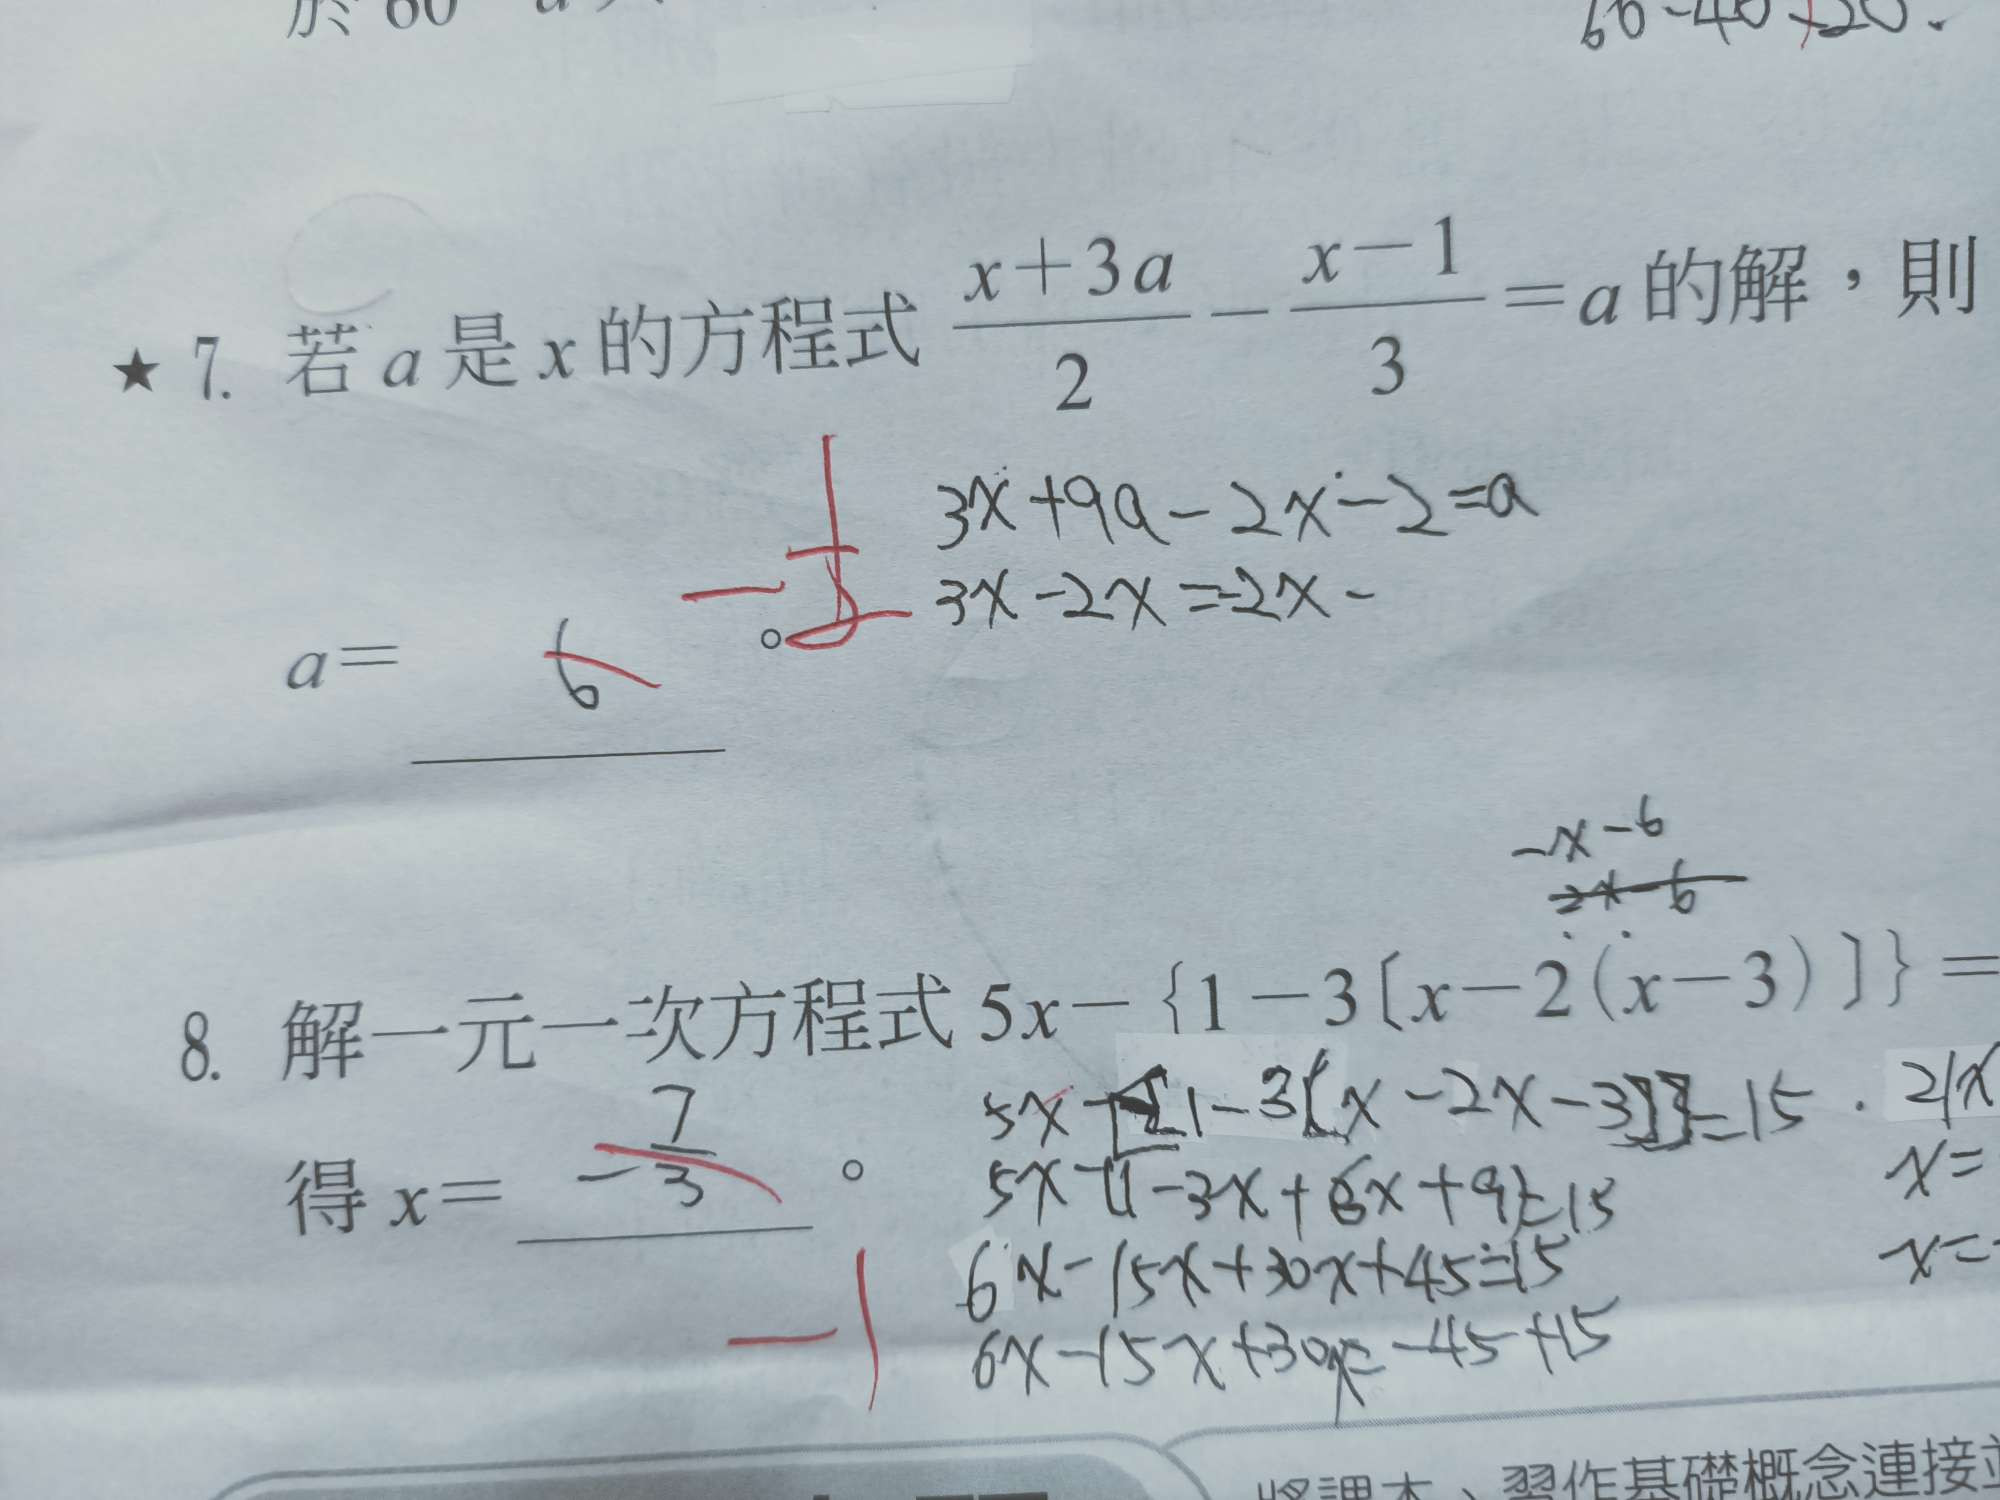 於 60
60-40+20.
★ 7. 若 a 是 x 的方程式 \frac{x+3a}{2} - \frac{x-1}{3} = a 的解，則
3x+9a-2x-2=a
3x-2x=-2x-
a= 6 。
-x-6
2x-6
8. 解一元一次方程式 5x-{1-3〔x-2(x-3)〕}=
5x-[1-3[x-2x-3]]=15 . 21x
得 x= -\frac{7}{3} 。
5x-(1-3x+6x+9)=15
x=
6x-15x+30x+45=15
x=-
-1
6x-15x+30x=-45+15
將課本、習作基礎概念連接